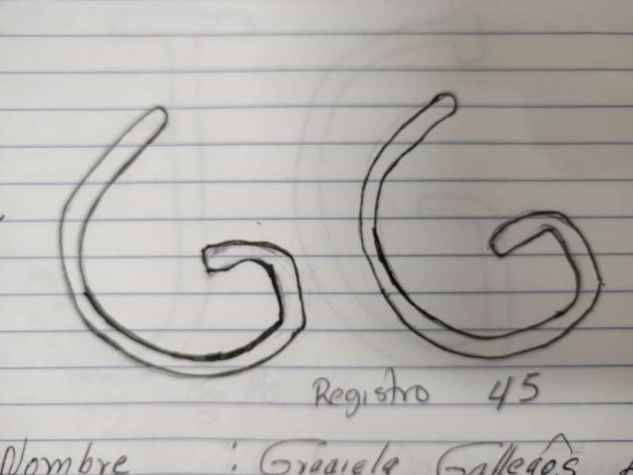 G G
Registro 45
Nombre : Graciela Gallegos